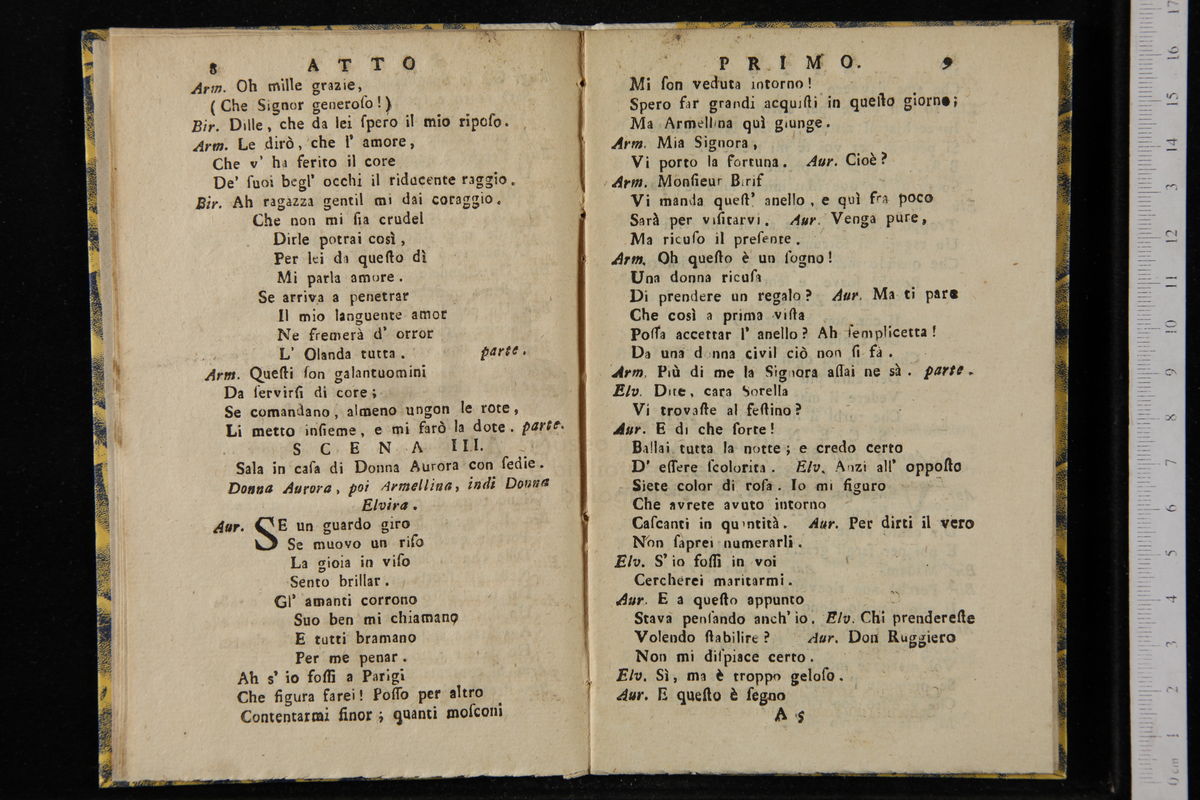 8 ATTO
Arm. Oh mille grazie,
(Che Signor generoſo!)
Bir. Dille, che da lei ſpero il mio ripoſo.
Arm. Le dirò, che l' amore,
Che v' ha ferito il core
De' ſuoi begl' occhi il riducente raggio.
Bir. Ah ragazza gentil mi dai coraggio.
Che non mi ſia crudel
Dirle potrai così,
Per lei da queſto dì
Mi parla amore.
Se arriva a penetrar
Il mio languente amor
Ne fremerà d' orror
L' Olanda tutta. parte.
Arm. Queſti ſon galantuomini
Da ſervirſi di core;
Se comandano, almeno ungon le rote,
Li metto inſieme, e mi farò la dote. parte.
SCENA III.
Sala in caſa di Donna Aurora con ſedie.
Donna Aurora, poi Armellina, indi Donna
Elvira.
Aur. SE un guardo giro
Se muovo un riſo
La gioia in viſo
Sento brillar.
Gl' amanti corrono
Suo ben mi chiamano
E tutti bramano
Per me penar.
Ah s' io foſſi a Parigi
Che figura farei! Poſſo per altro
Contentarmi finor; quanti moſconi
PRIMO. 9
Mi ſon veduta intorno!
Spero far grandi acquiſti in queſto giorno;
Ma Armellina quì giunge.
Arm. Mia Signora,
Vi porto la fortuna. Aur. Cioè?
Arm. Monſieur Birif
Vi manda queſt' anello, e quì fra poco
Sarà per viſitarvi. Aur. Venga pure,
Ma ricuſo il preſente.
Arm. Oh queſto è un ſogno!
Una donna ricuſa
Di prendere un regalo? Aur. Ma ti pare
Che così a prima viſta
Poſſa accettar l' anello? Ah ſemplicetta!
Da una donna civil ciò non ſi fà.
Arm. Più di me la Signora aſſai ne sà. parte.
Elv. Dite, cara Sorella
Vi trovaſte al feſtino?
Aur. E di che ſorte!
Ballai tutta la notte; e credo certo
D' eſſere ſcolorita. Elv. Anzi all' oppoſto
Siete color di roſa. Io mi figuro
Che avrete avuto intorno
Caſcanti in quantità. Aur. Per dirti il vero
Non ſaprei numerarli.
Elv. S' io foſſi in voi
Cercherei maritarmi.
Aur. E a queſto appunto
Stava penſando anch' io. Elv. Chi prendereſte
Volendo ſtabilire? Aur. Don Ruggiero
Non mi diſpiace certo.
Elv. Sì, ma è troppo geloſo.
Aur. E queſto è ſegno
A 5
0 cm 1 2 3 4 5 6 7 8 9 10 11 12 13 14 15 16 17